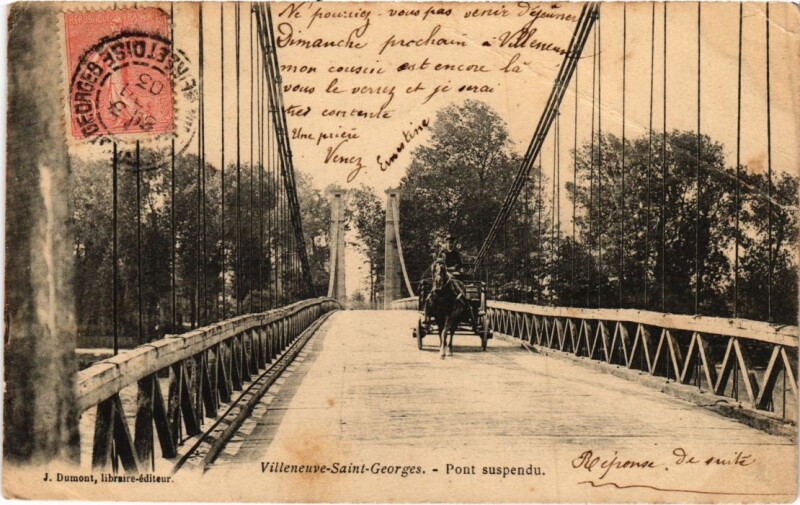 Ne pourriez-vous pas venir Déjeuner
Dimanche prochain à Villeneuve
mon cousin est encore là
vous le verrez et je serai
très contente
Une prière
Venez
Ernestine
Villeneuve-Saint-Georges. - Pont suspendu.
Réponse de suite
J. Dumont, libraire-éditeur.